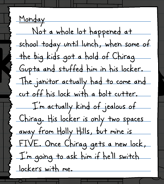 Monday
Not a whole lot happened at
school today until lunch, when some of
the big kids got a hold of Chirag
Gupta and stuffed him in his locker.
The janitor actually had to come and
cut off his lock with a bolt cutter.
I'm actually kind of jealous of
Chirag. His locker is only two spaces
away from Holly Hills, but mine is
FIVE. Once Chirag gets a new lock,
I'm going to ask him if he'll switch
lockers with me.